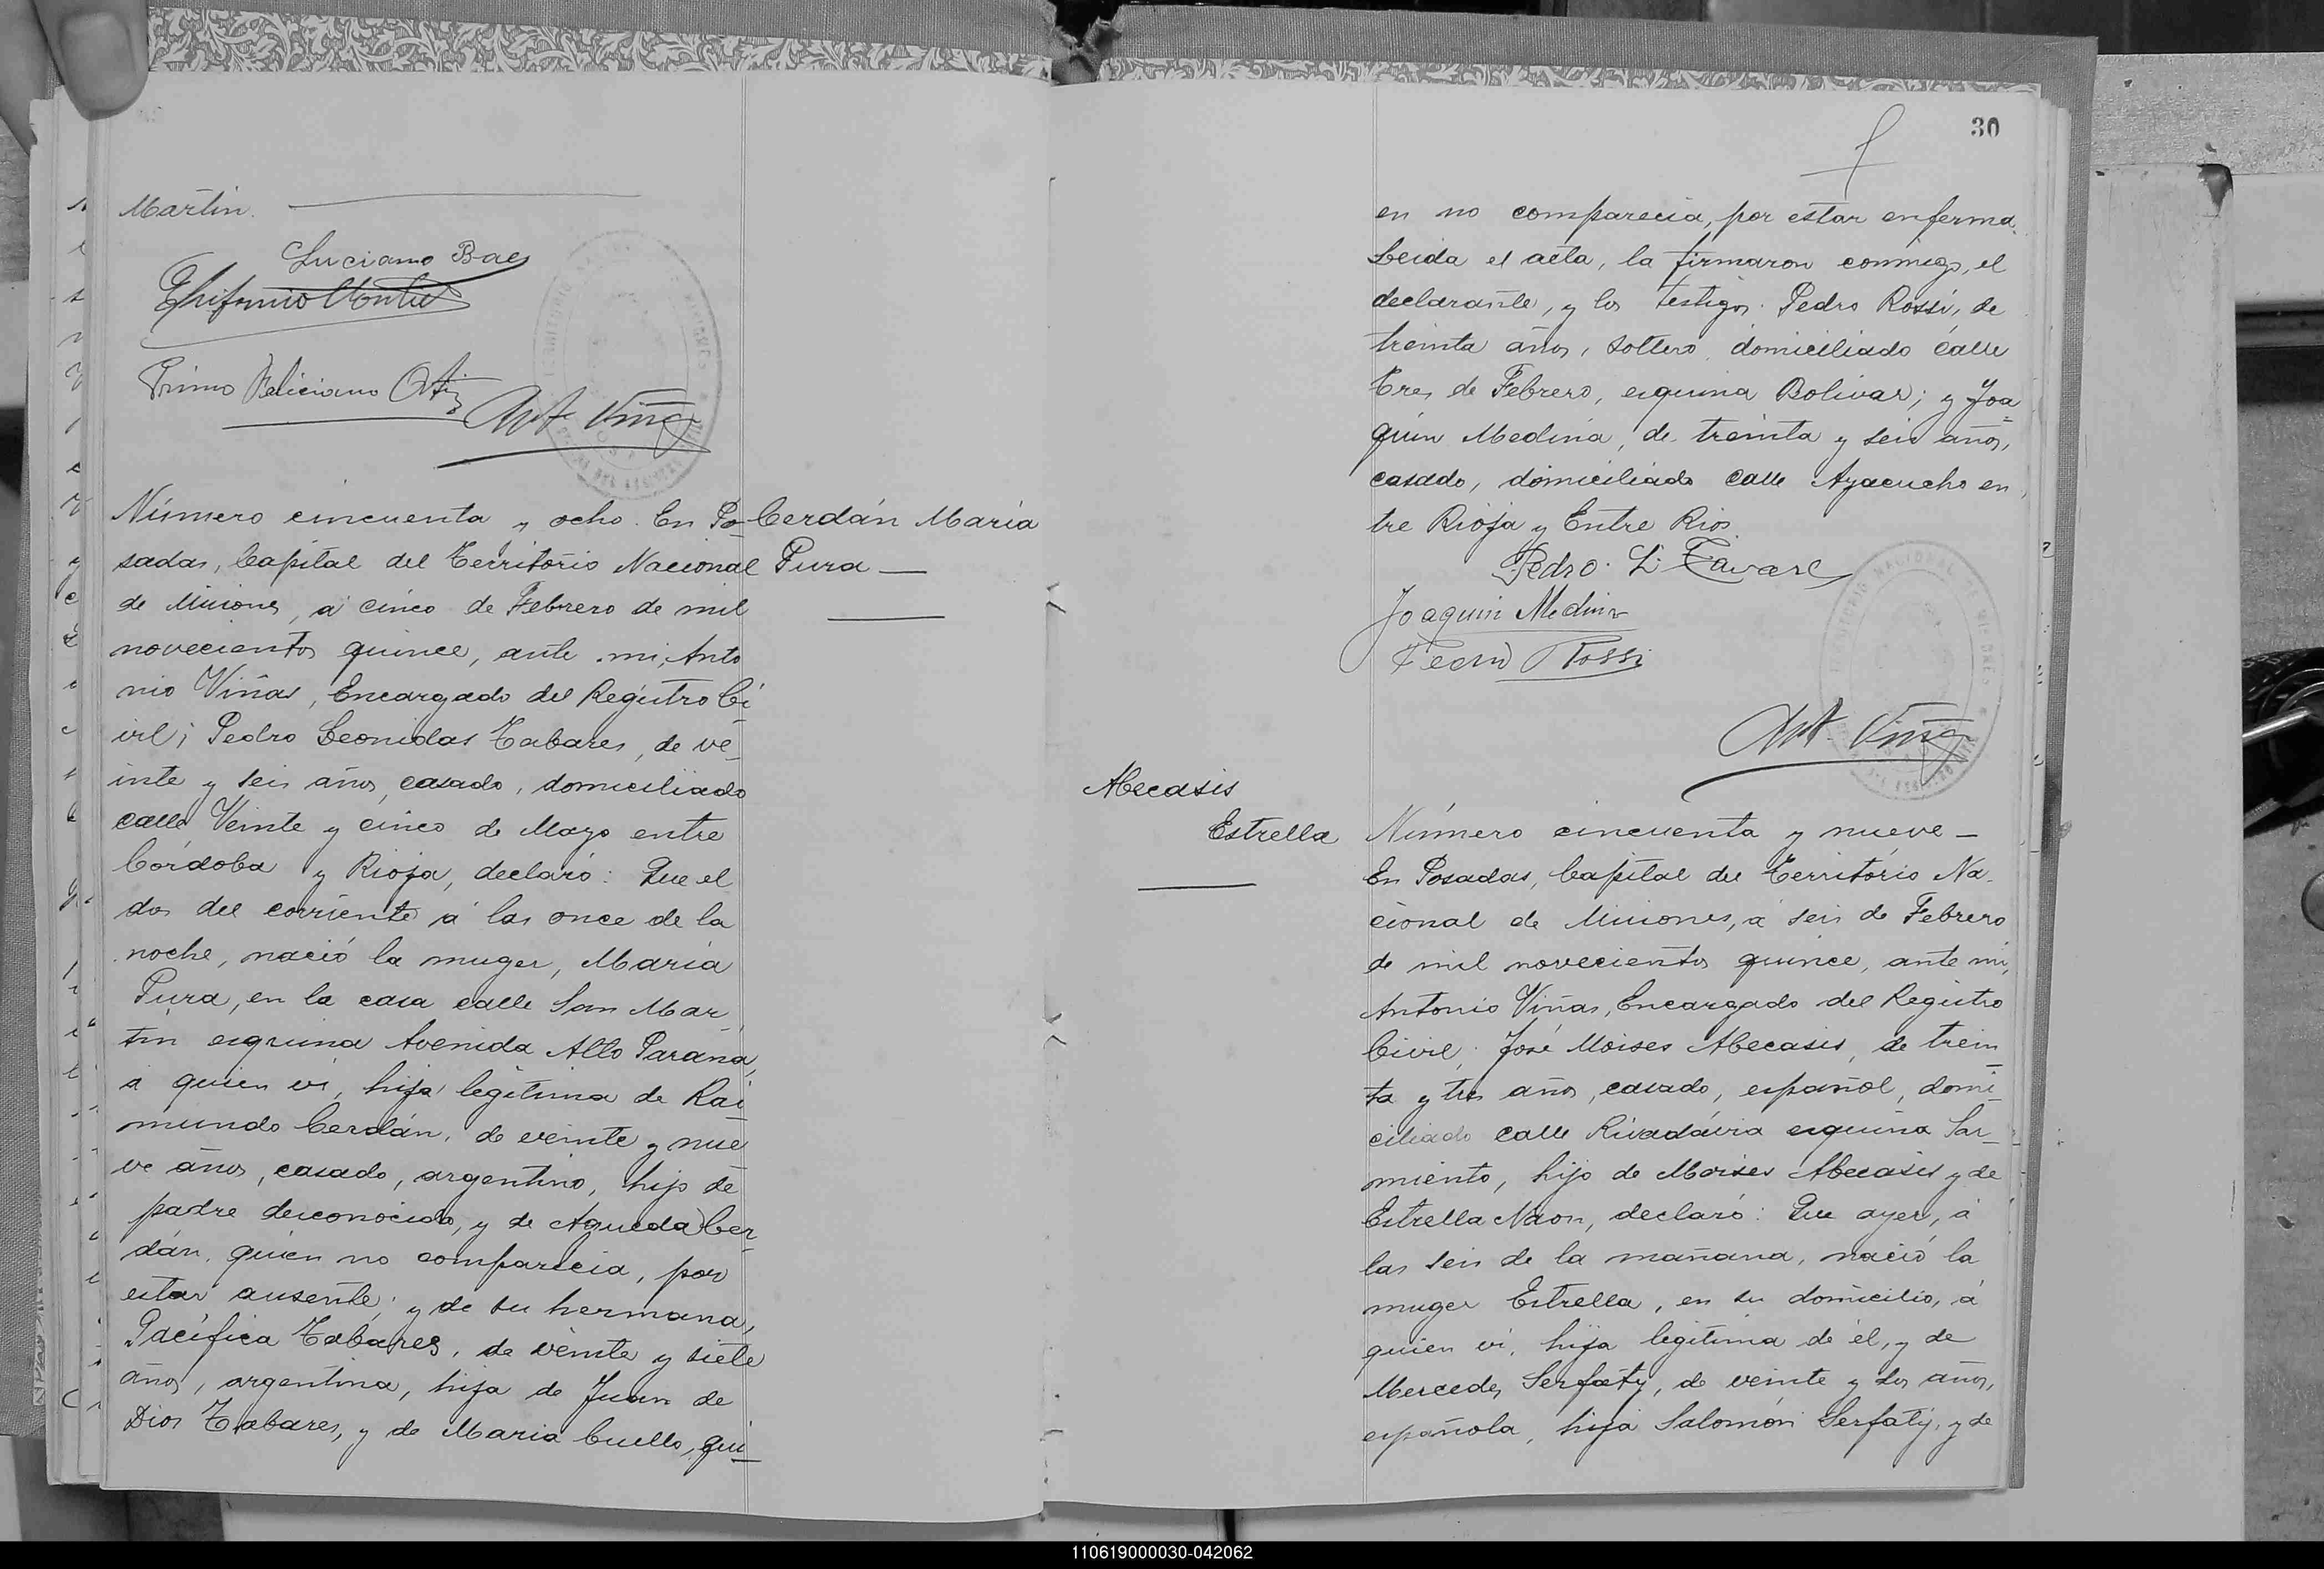 Martin.
Luciano Baes
Primo Feliciano Ortiz
Ant Viñas
Número cincuenta y ocho. En Po-
sadas, Capital del Territorio Nacional
de Misiones, á cinco de Febrero de mil
novecientos quince, ante mi, Anto
nio Viñas, Encargado del Registro Ci-
vil; Pedro Leonidas Tabares, de ve-
inte y seis años, casado, domiciliado
calle Veinte y cinco de Mayo entre
Córdoba y Rioja, declaró: Que el
dos del corriente á las once de la
noche, nació la muger, María
Pura, en la casa calle San Mar-
tin esquina Avenida Alto Paraná,
á quien vi, hija legítima de Rai-
mundo Cerdán, de veinte y nue
ve años, casado, argentino, hijo de
padre desconocido, y de Agueda Cer-
dán, quien no comparecia, por
estar ausente; y de su hermana,
Pacífica Tabares, de veinte y siete
años, argentina, hija de Juan de
Dios Tabares, y de Maria Cuello, qui-
Cerdán María
Pura
30
en no comparecia, por estar enferma.
Leida el acta, la firmaron conmigo, el
declarante, y los testigos. Pedro Rossi, de
treinta años, soltero, domiciliado calle
Tres de Febrero, esquina Bolivar; y Joa-
quin Medina, de treinta y seis años,
casado, domiciliado calle Ayacucho en
tre Rioja y Entre Rios
Pedro L. Tavare
Joaquin Medina
Pedro Rossi
Ant. Viñas
Abecasis
Estrella
Número cincuenta y nueve -
En Posadas, Capital del Territorio Na-
cional de Misiones, á seis de Febrero
de mil novecientos quince, ante mi,
Antonio Viñas, Encargado del Registro
Civil; José Moises Abecasis, de trein-
ta y tres años, casado, español, domi-
ciliado calle Rivadavia esquina Sar-
miento, hijo de Moises Abecasis y de
Estrella Naon, declaró: Que ayer, á
las seis de la mañana, nació la
muger Estrella, en su domicilio, á
quien vi, hija legítima de él, y de
Mercedes Serfaty, de veinte y dos años,
española, hija Salomón Serfaty, y de
110619000030-042062